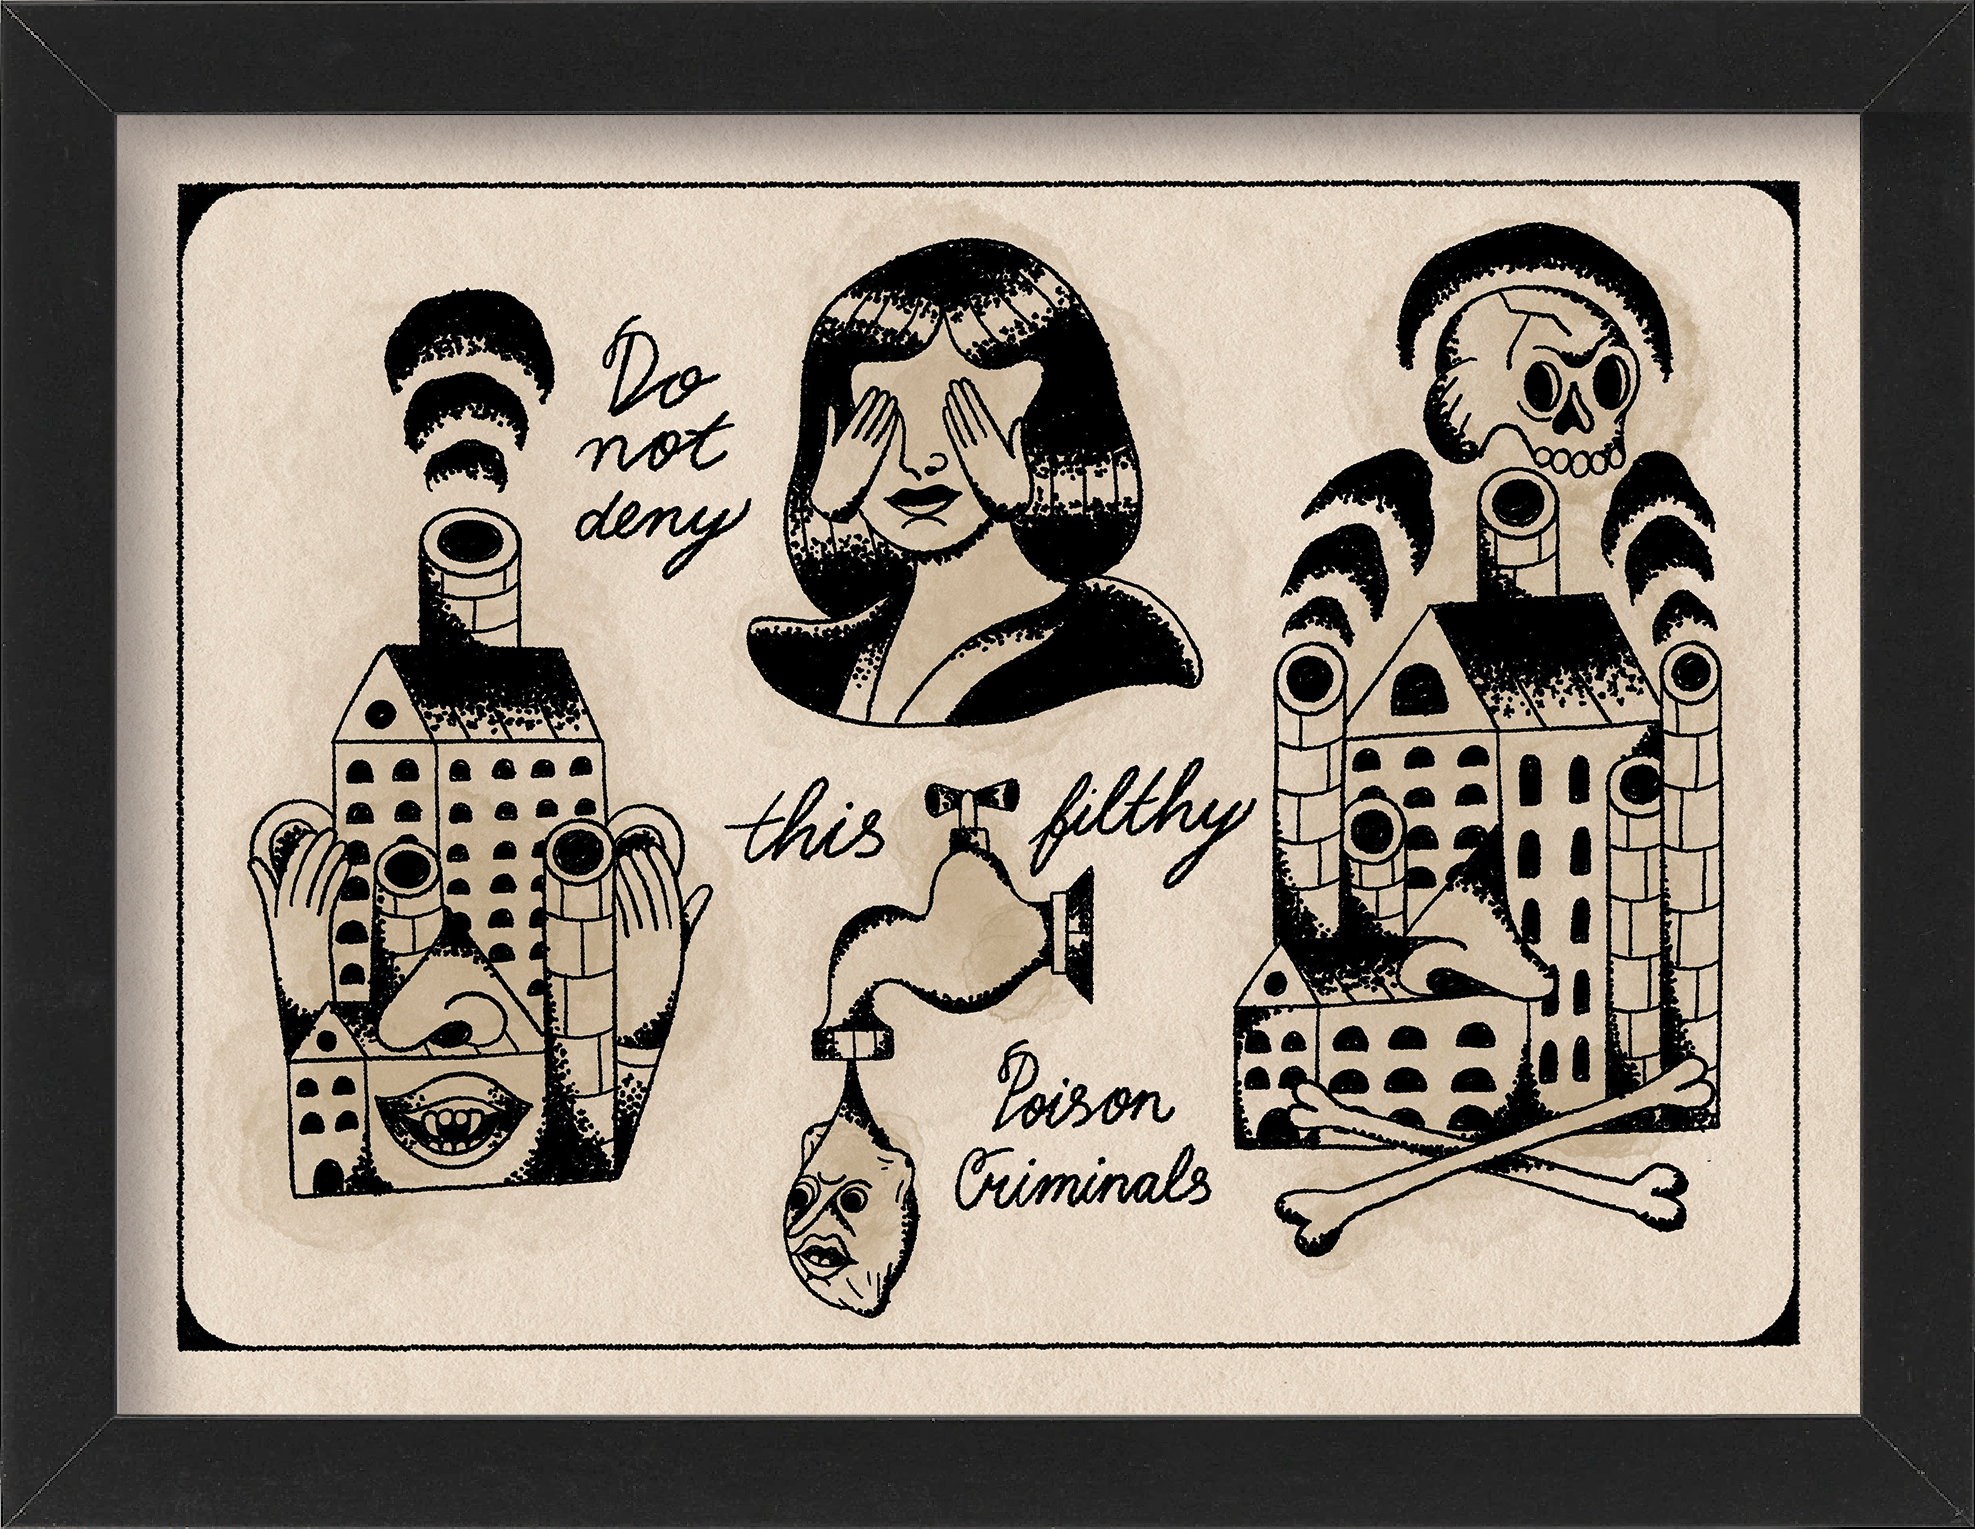 Do
not
deny
this filthy
Poison
Criminals